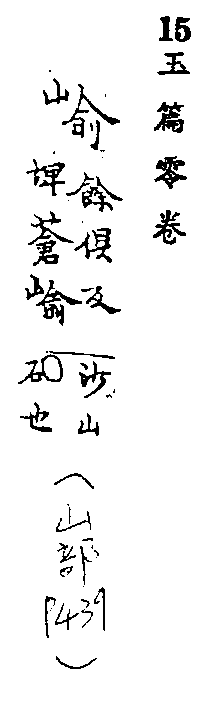 15 玉篇零卷
嵛
餘俱反
埤蒼嵛
沙山
也
(山部
P439)